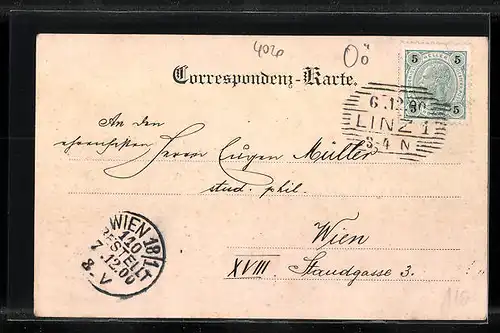 4020
Oö
5 HELLER 5
5 5
Correspondenz-Karte.
6.12.00
LINZ 1
3-4 N
An den
ehrenfesten Herrn Eugen Müller
stud. phil.
Wien
XVIII. Staudgasse 3.
WIEN 18/1
110
BESTELLT
7.12.00
8.V
110